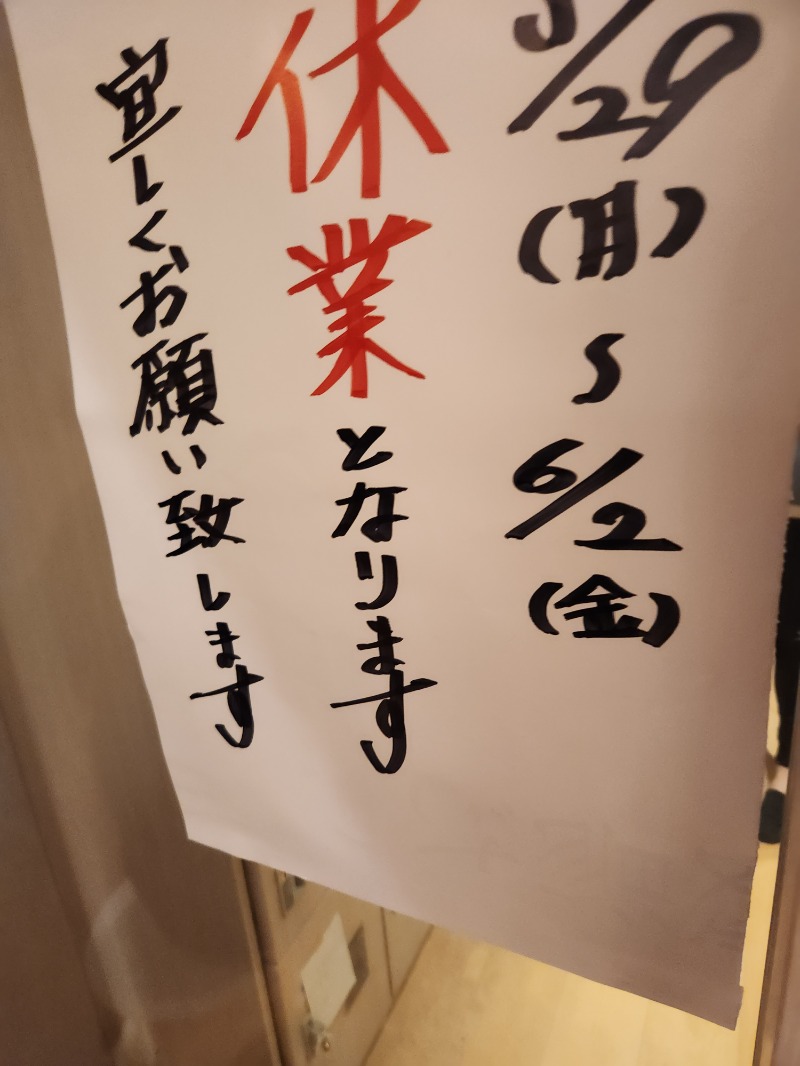 5/29(月)〜6/2(金)
休業となります
宜しくお願い致します